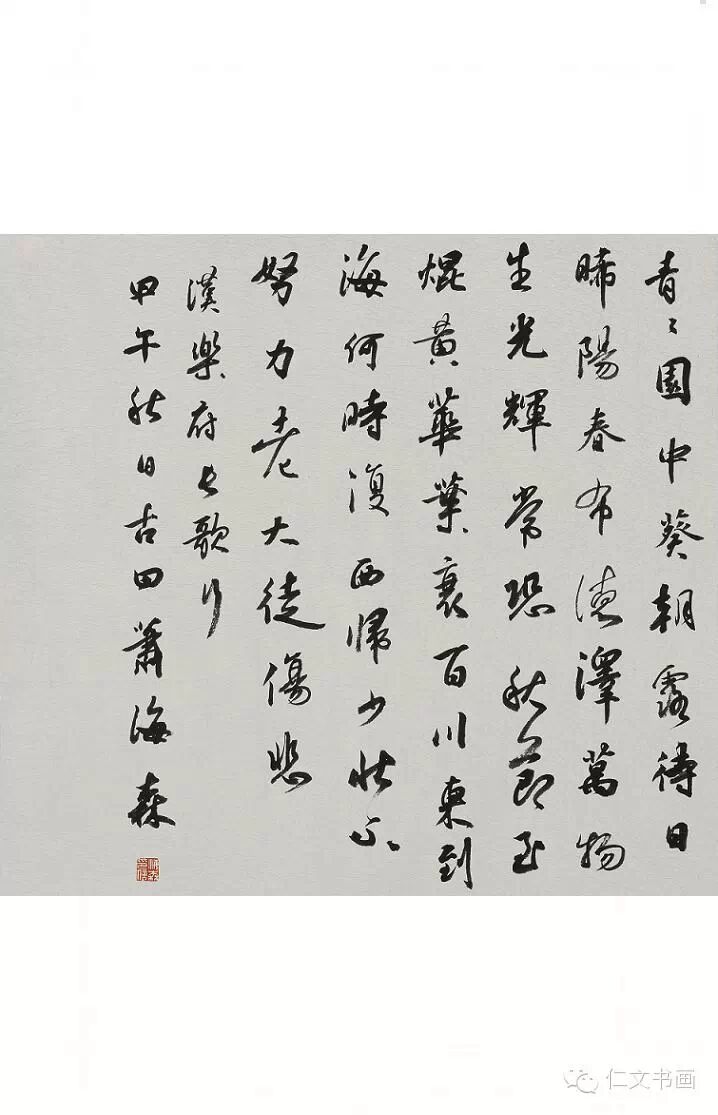 青〻園中葵朝露待日
晞陽春布德澤萬物
生光輝常恐秋節至
焜黄華葉衰百川東到
海何時復西歸少壯不
努力老大徒傷悲
漢樂府長歌行
甲午秋日古田蕭海森
仁文书画